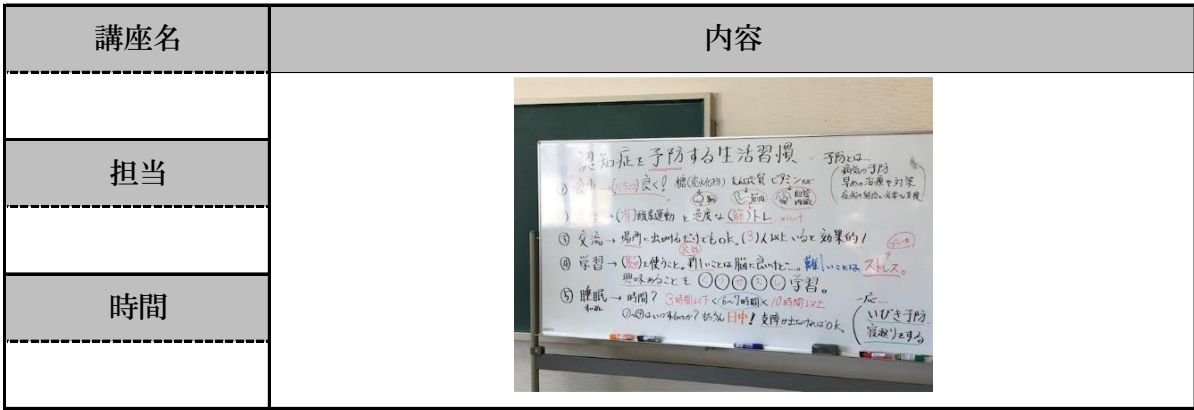 講座名
内容
担当
時間
認知症を予防する生活習慣
予防とは…
病気の予防
早めの治療や対策
① 食事→(バランス)良く! 糖(炭水化物) たんぱく質 ビタミンなど
脳
筋肉
内臓
→(有)酸素運動と適度な(筋)トレ
③ 交流→場所に出かけるだけでもok。(3)人以上いると効果的!
④ 学習→(脳)を使うこと。新しいことは脳に良いけど…。難しいことはストレス。
興味あることを〇〇〇〇〇学習。
⑤ 睡眠→時間? 3時間以下<(6~7時間)<10時間以上
すいみん
いつするのか?もちろん日中! 支障が出なければok。
一応…
いびき予防
寝返りをする